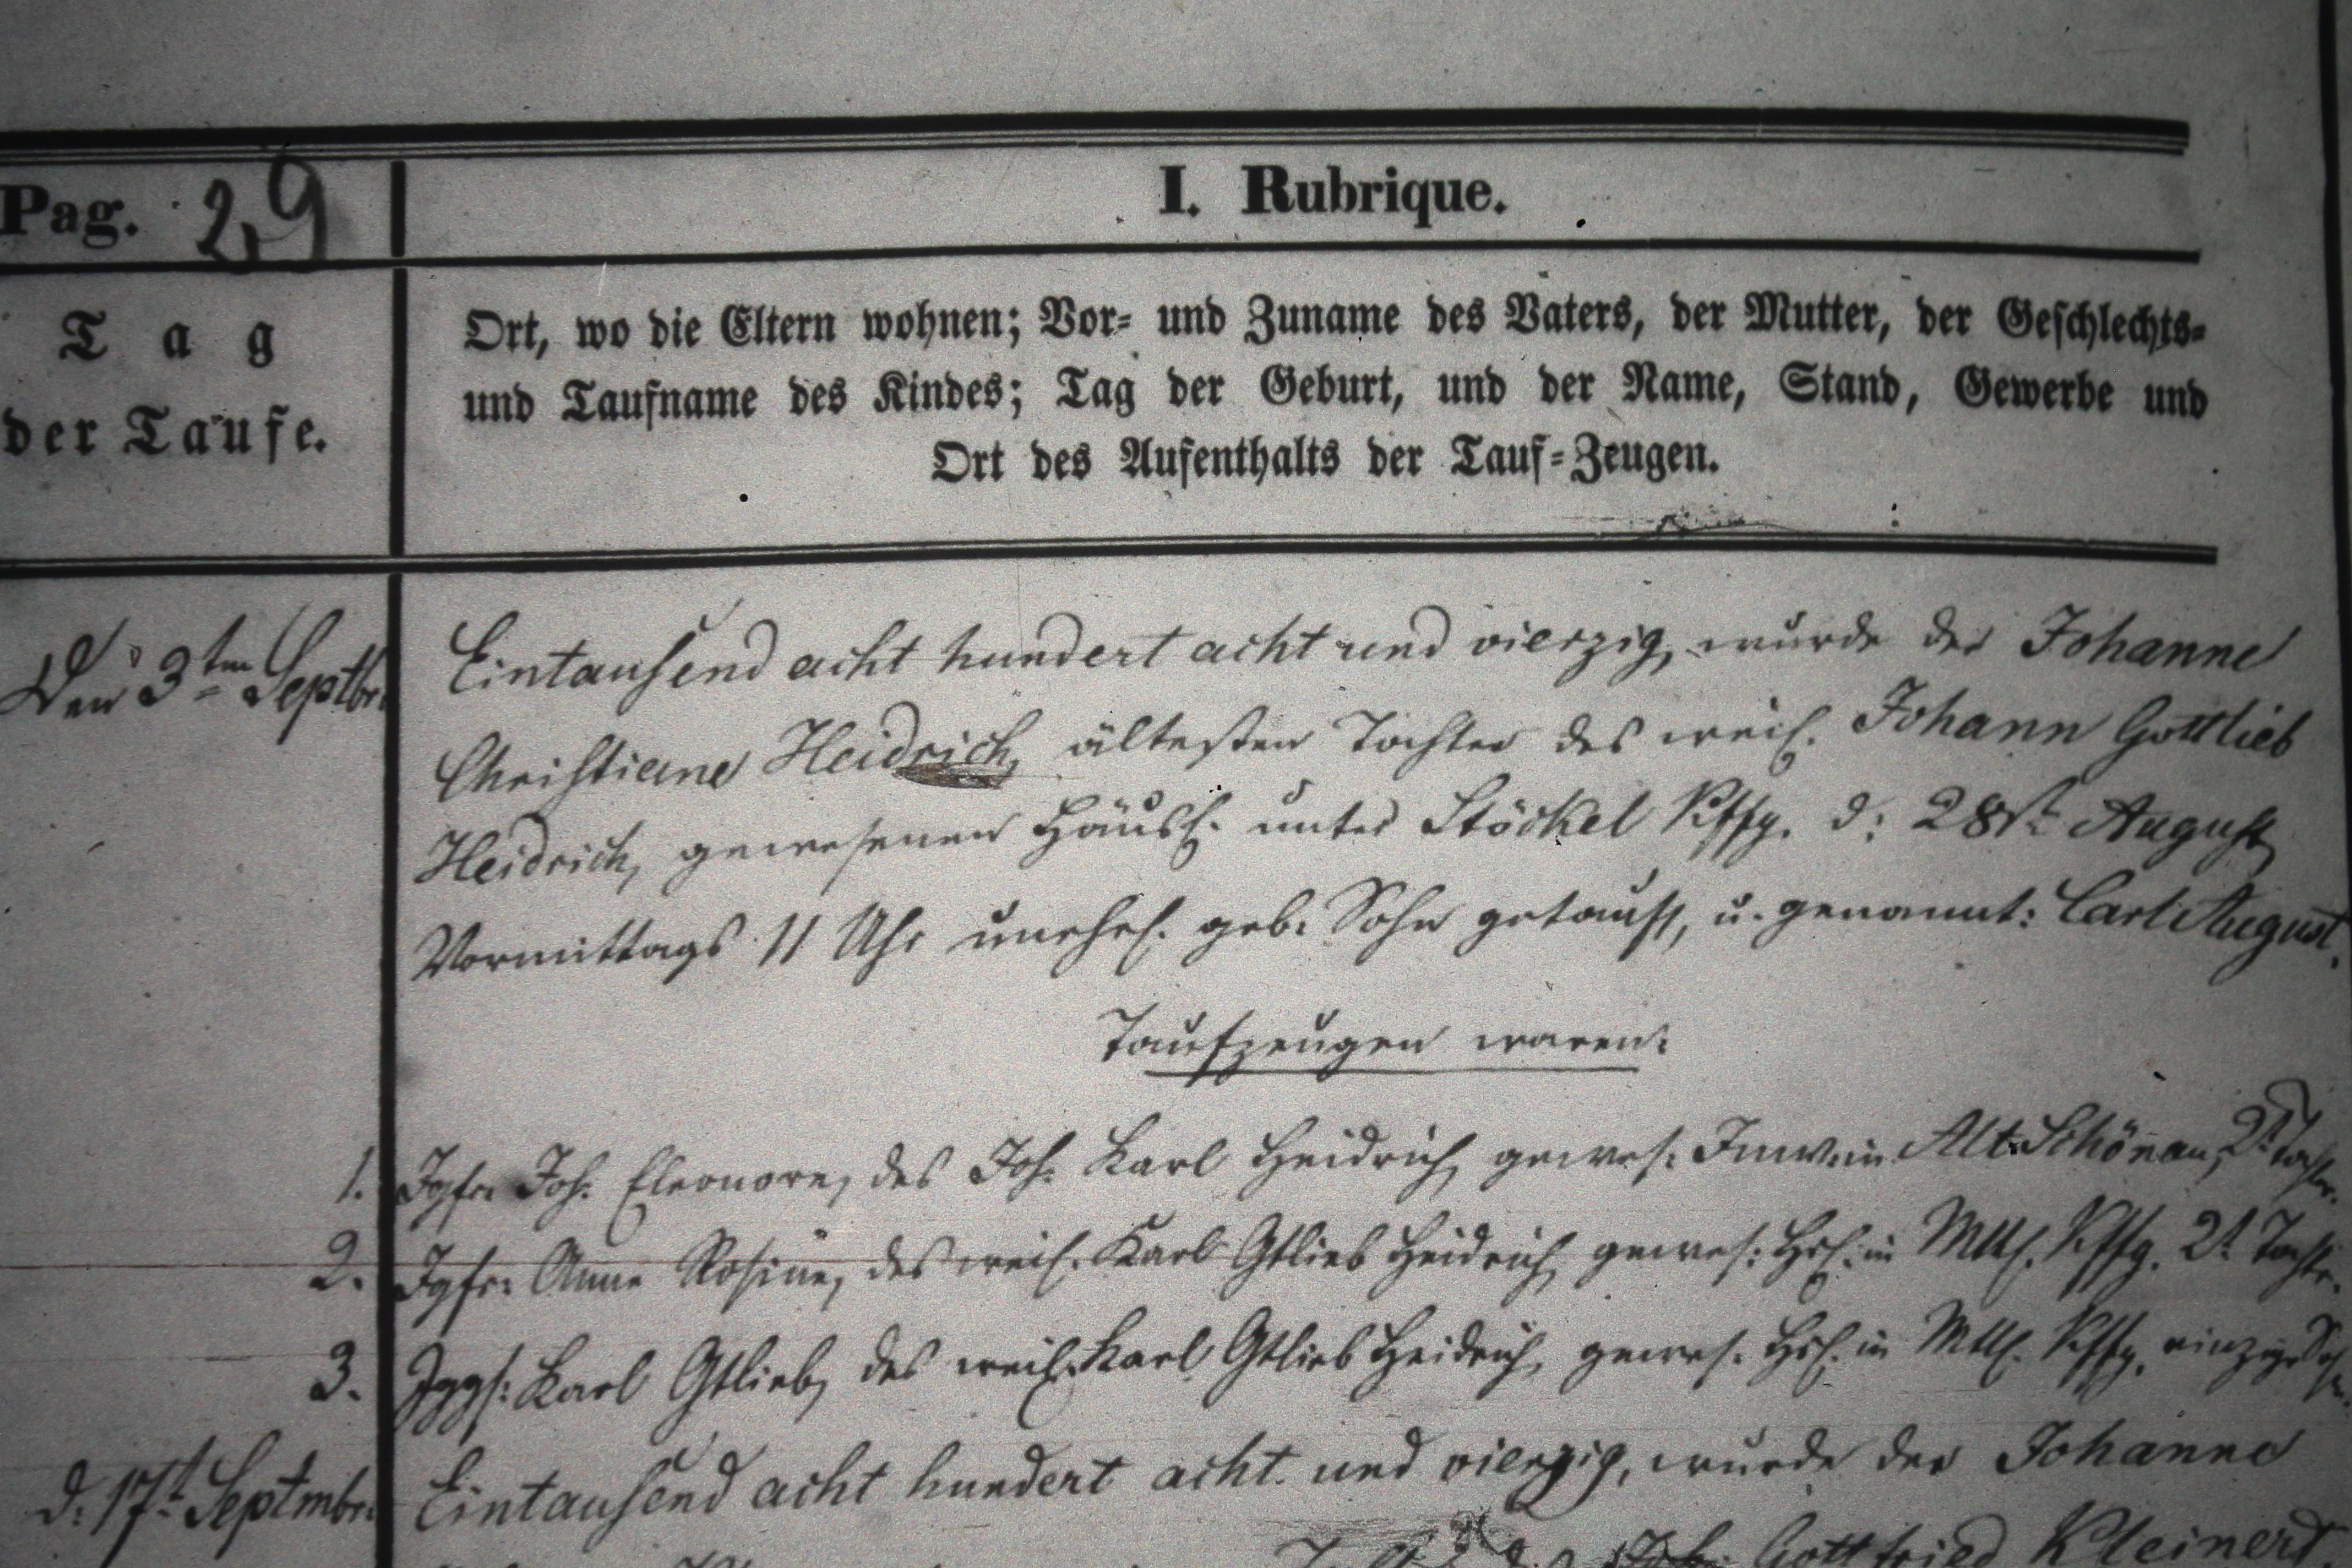 Pag. 29
I. Rubrique.
Tag
der Taufe.
Ort, wo die Eltern wohnen; Vor- und Zuname des Vaters, der Mutter, der Geschlechts-
und Taufname des Kindes; Tag der Geburt, und der Name, Stand, Gewerbe und
Ort des Aufenthalts der Tauf-Zeugen.
Den 3ten Septbr.
Eintausend acht hundert acht und vierzig, wurde der Johanne
Christiane Heidrich, ältesten Tochter des weil. Johann Gottlieb
Heidrich, gewesenen Häusl. unter Stöckel Kffg. d: 28st August
Vormittags 11 Uhr unehel. geb. Sohn getauft, u. genannt: Carl August.
Taufzeugen waren:
1. Jgfr. Joh. Eleonore, des Joh. Karl Heidrich, gewes. Inw. in Alt-Schönau, 2t Tochter.
2. Jgfr. Anne Rosine, des weil. Karl Gtlieb Heidrich, gewes. Hsl. in Mttl. Kffg. 2t Tochtr.
3. Jggs. Karl Gtlieb, des weil. Karl Gtlieb Heidrich, gewes. Hsl. in Mttl. Kffg. einzige Sohn
d. 17t Septmbr.
Eintausend acht hundert acht und vierzig, wurde der Johanne
Gottfried Kleinert